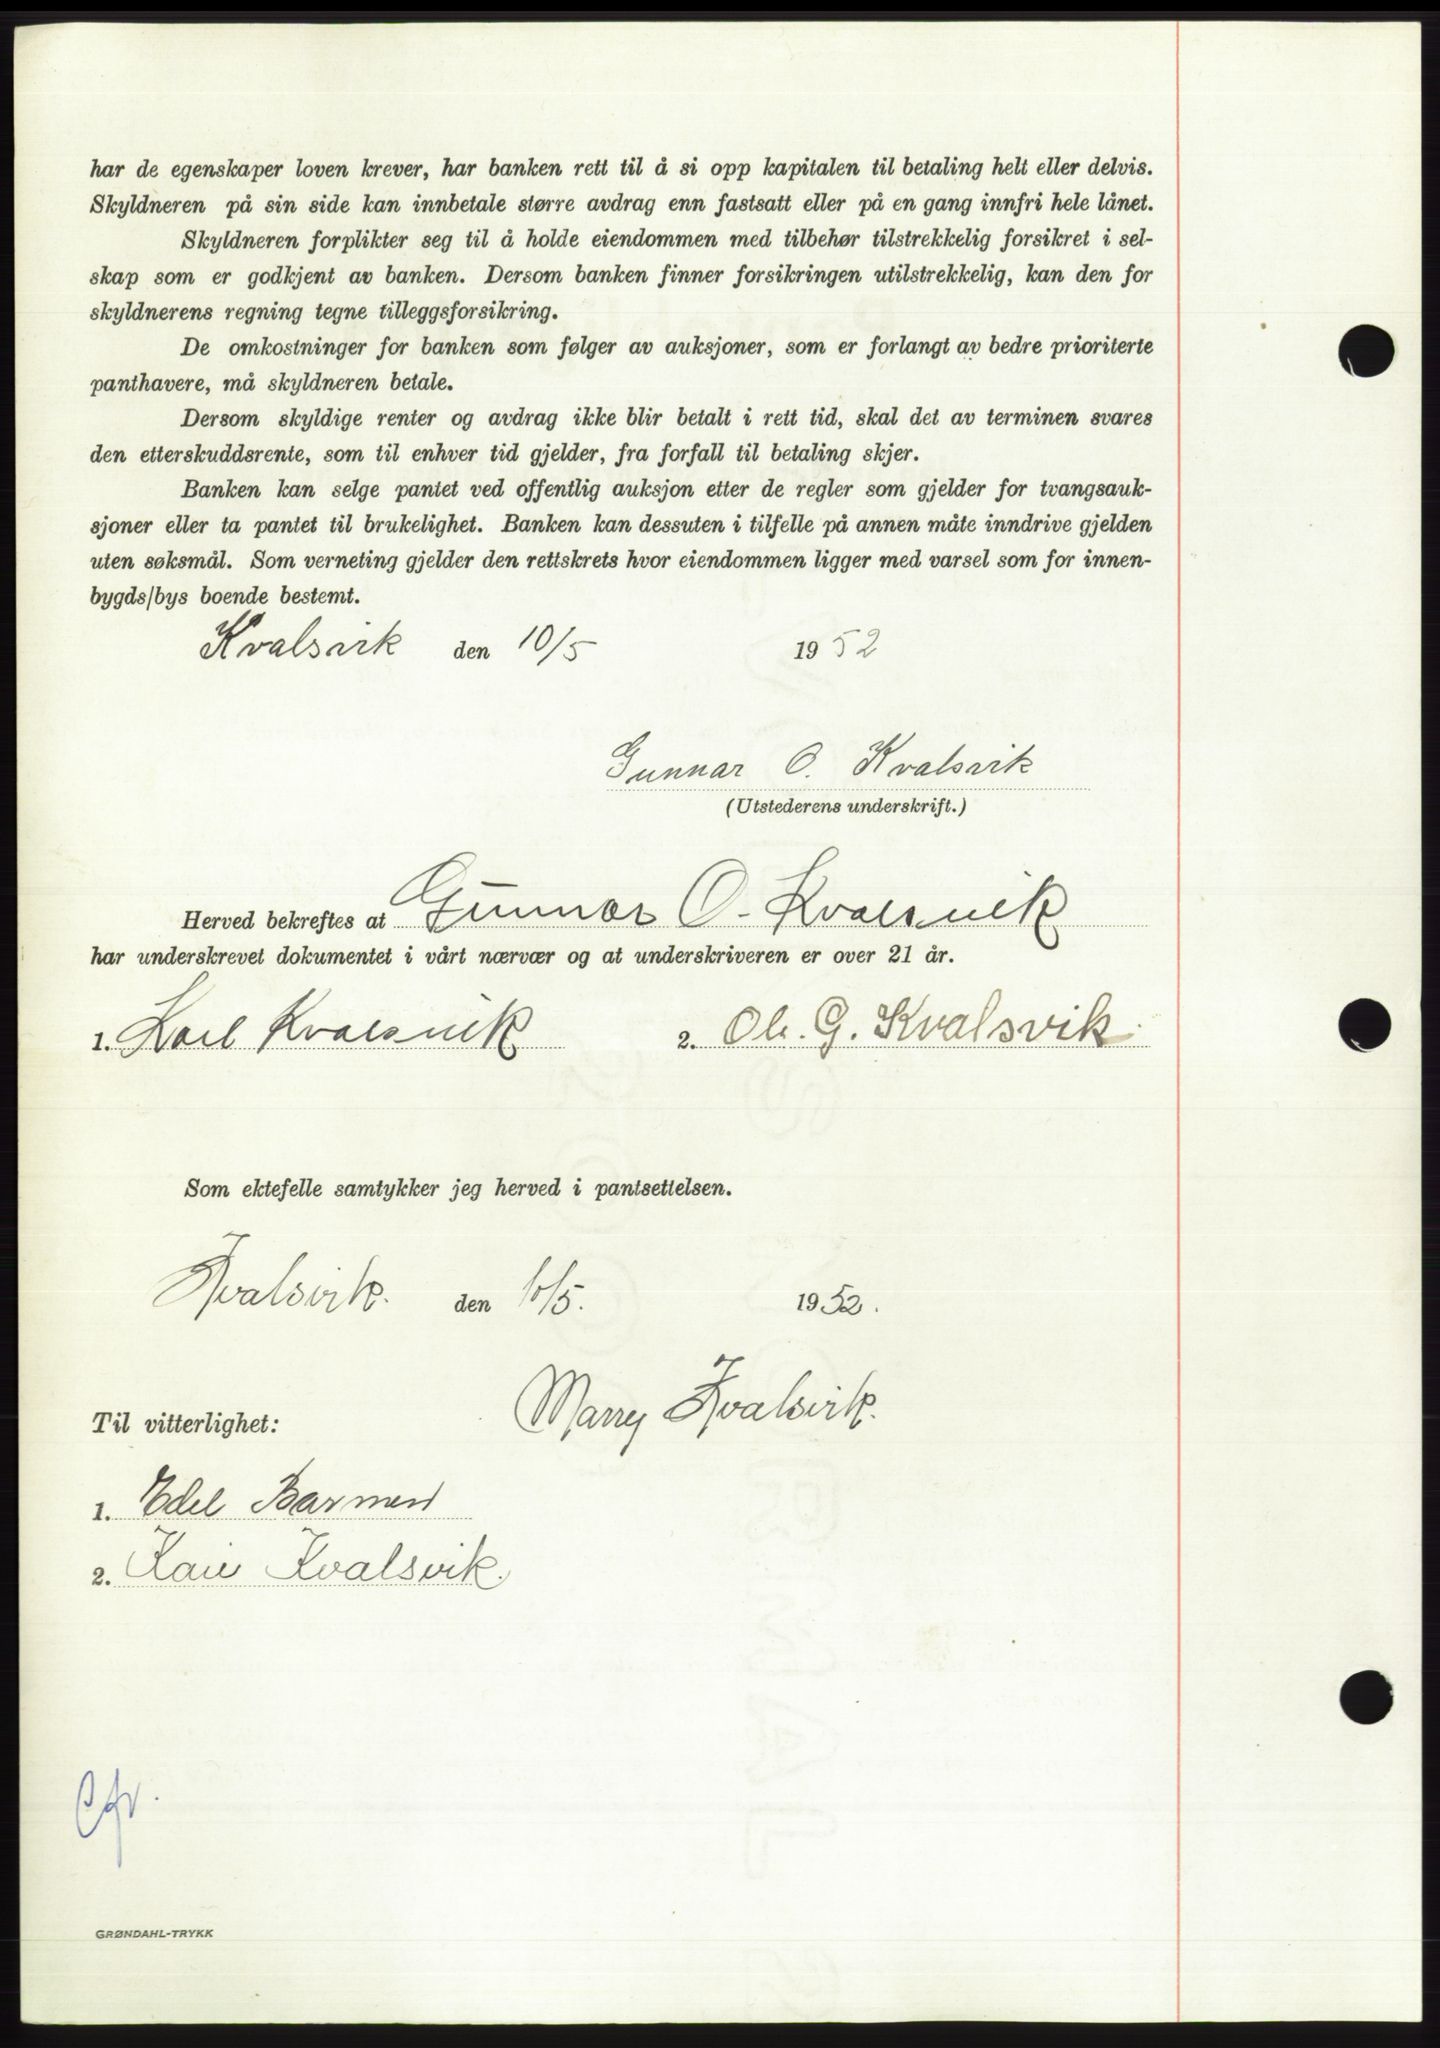 har de egenskaper loven krever, har banken rett til å si opp kapitalen til betaling helt eller delvis.
Skyldneren på sin side kan innbetale større avdrag enn fastsatt eller på en gang innfri hele lånet.
Skyldneren forplikter seg til å holde eiendommen med tilbehør tilstrekkelig forsikret i sel-
skap som er godkjent av banken. Dersom banken finner forsikringen utilstrekkelig, kan den for
skyldnerens regning tegne tilleggsforsikring.
De omkostninger for banken som følger av auksjoner, som er forlangt av bedre prioriterte
panthavere, må skyldneren betale.
Dersom skyldige renter og avdrag ikke blir betalt i rett tid, skal det av terminen svares
den etterskuddsrente, som til enhver tid gjelder, fra forfall til betaling skjer.
Banken kan selge pantet ved offentlig auksjon etter de regler som gjelder for tvangsauk-
sjoner eller ta pantet til brukelighet. Banken kan dessuten i tilfelle på annen måte inndrive gjelden
uten søksmål. Som verneting gjelder den rettskrets hvor eiendommen ligger med varsel som for innen-
bygds/bys boende bestemt.
Kvalsvik den 10/5 1952
Gunnar O. Kvalsvik
(Utstederens underskrift.)
Herved bekreftes at Gunnar O. Kvalsvik
har underskrevet dokumentet i vårt nærvær og at underskriveren er over 21 år.
1. Karl Kvalsvik 2. Ole. G. Kvalsvik.
Som ektefelle samtykker jeg herved i pantsettelsen.
Kvalsvik. den 10/5. 1952.
Marry Kvalsvik.
Til vitterlighet:
1. Edel Barmen
2. Kari Kvalsvik.
GRØNDAHL-TRYKK